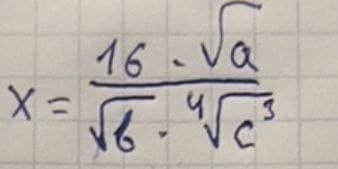 x = \frac{16 \cdot \sqrt{a}}{\sqrt{b} \cdot \sqrt[4]{c^3}}